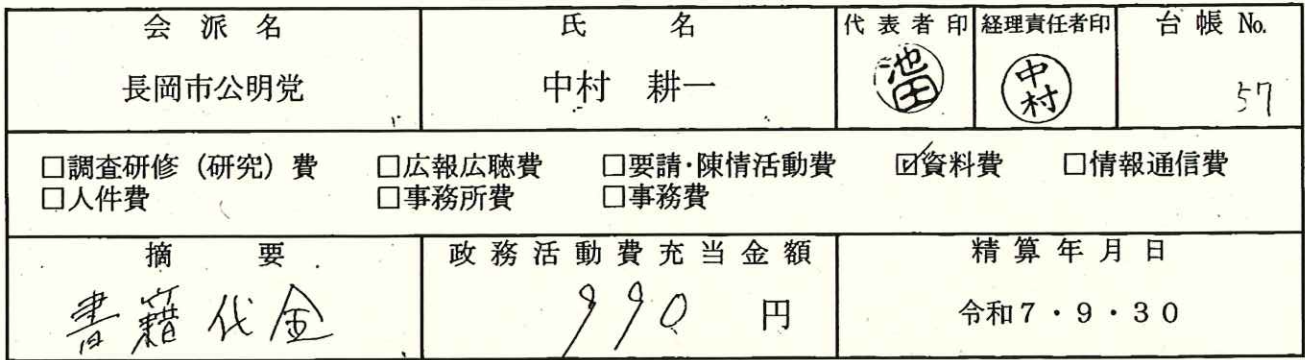 会派名 氏名 代表者印 経理責任者印 台帳 No.
長岡市公明党 中村 耕一 池田 中村 57
□調査研修（研究）費 □広報広聴費 □要請・陳情活動費 ☑資料費 □情報通信費
□人件費 □事務所費 □事務費
摘要 政務活動費充当金額 精算年月日
書籍代金 990 円 令和7・9・30